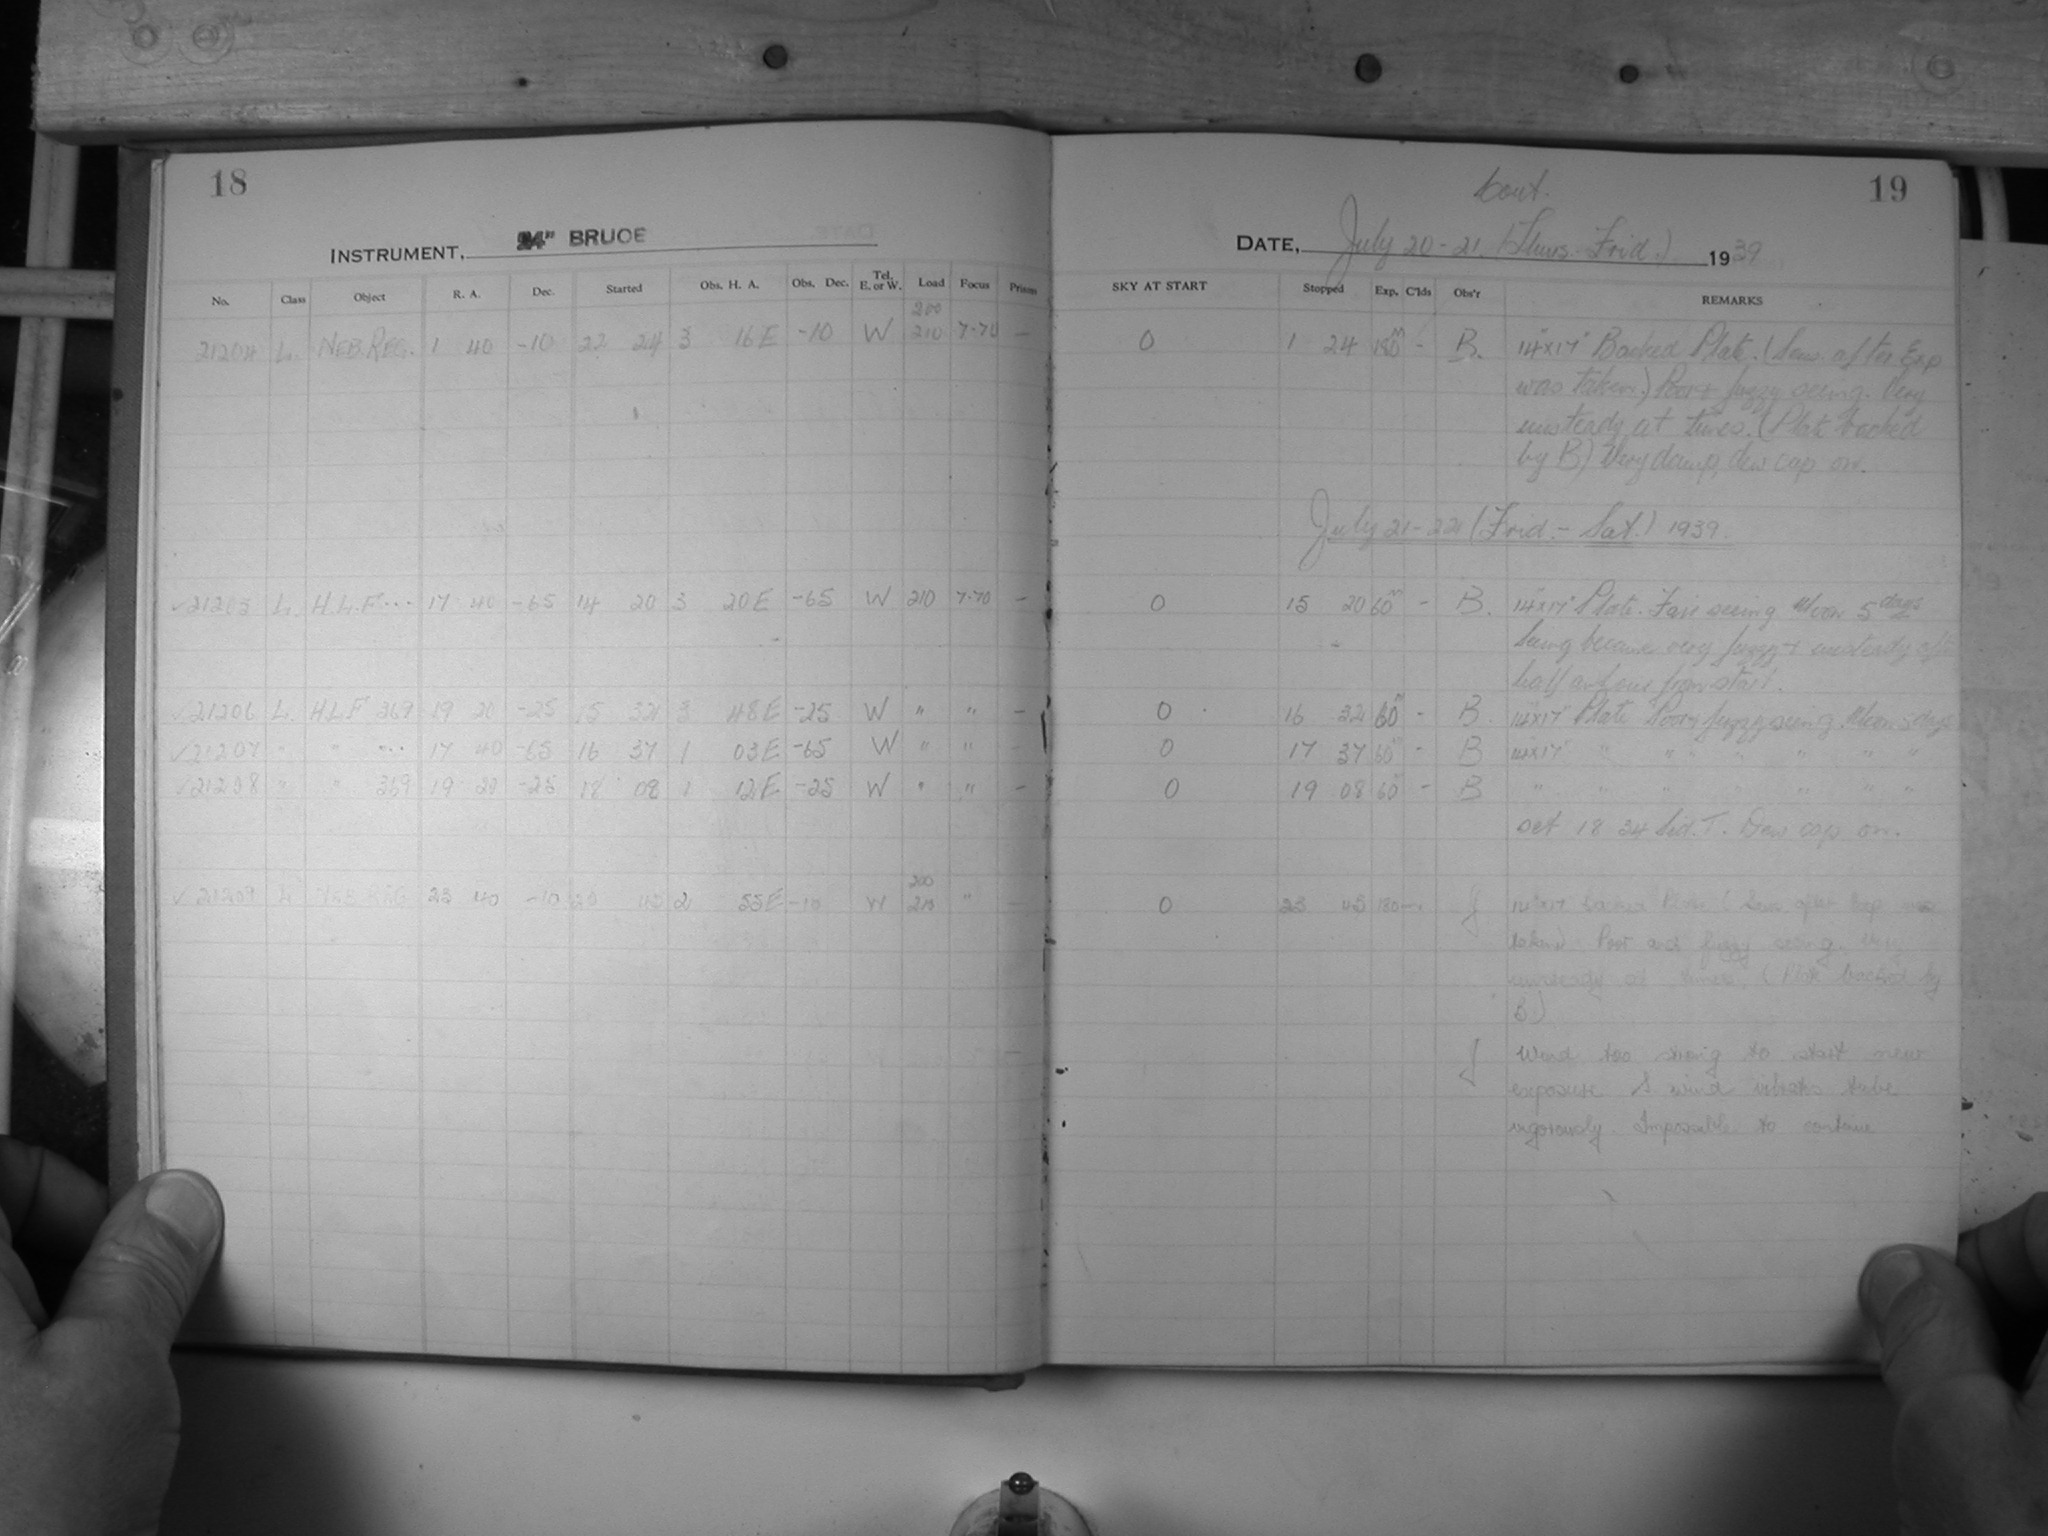 18
INSTRUMENT, 24" BRUCE
No. Class Object R. A. Dec. Started Obs. H. A. Obs. Dec. Tel. E. or W. Load Focus Prism
200
21204 L. NEB. REG. 1 40 -10 22 24 3 16E -10 W 210 7.70 -
✓21205 L. H.L.F ... 17 40 -65 14 20 3 20E -65 W 210 7.70 -
✓21206 L. H.L.F 369 19 20 -25 15 32 3 48E -25 W " " -
✓21207 " " ... 17 40 -65 16 37 1 03E -65 W " " -
✓21208 " " 369 19 20 -25 18 08 1 12E -25 W " " -
200
✓21209 L NEB REG 23 40 -10 20 45 2 55E -10 W 210 " -
19
Cont.
DATE, July 20-21. (Thurs. Frid.) 1939
SKY AT START Stopped Exp. C'lds Obs'r REMARKS
0 1 24 180m - B. 14"x17" Backed Plate. (Sens. after Exp
was taken.) Poor + fuzzy seeing. Very
unsteady at times. (Plate backed
by B) Very damp, dew cap on.
July 21-22 (Frid. - Sat.) 1939.
0 15 20 60m - B. 14"x17" Plate. Fair seeing Moon 5 days
Seeing became very fuzzy + unsteady after
half an hour from start.
0 16 32 60m - B. 14"x17" Plate Poor + fuzzy seeing. Moon 5 days
0 17 37 60 - B 14x17" " " " " " " "
0 19 08 60 - B " " " " " " "
set 18 34 Sid. T. Dew cap on.
0 23 45 180 - J 14"x17" backed Plate (Sens after Exp was
taken) Poor and fuzzy seeing. Very
unsteady at times. (Plate backed by
B)
J Wind too strong to start new
exposure S wind vibrates tube
vigorously. Impossible to continue